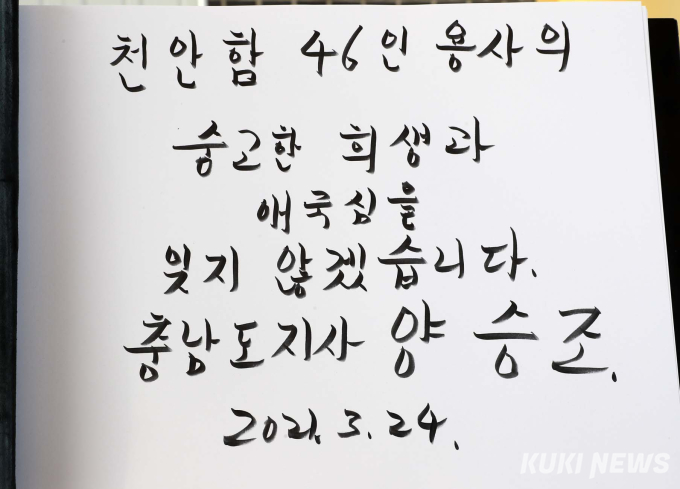 천안함 46인 용사의
숭고한 희생과
애국심을
잊지 않겠습니다.
충남도지사 양승조.
2021. 3. 24.
KUKI NEWS